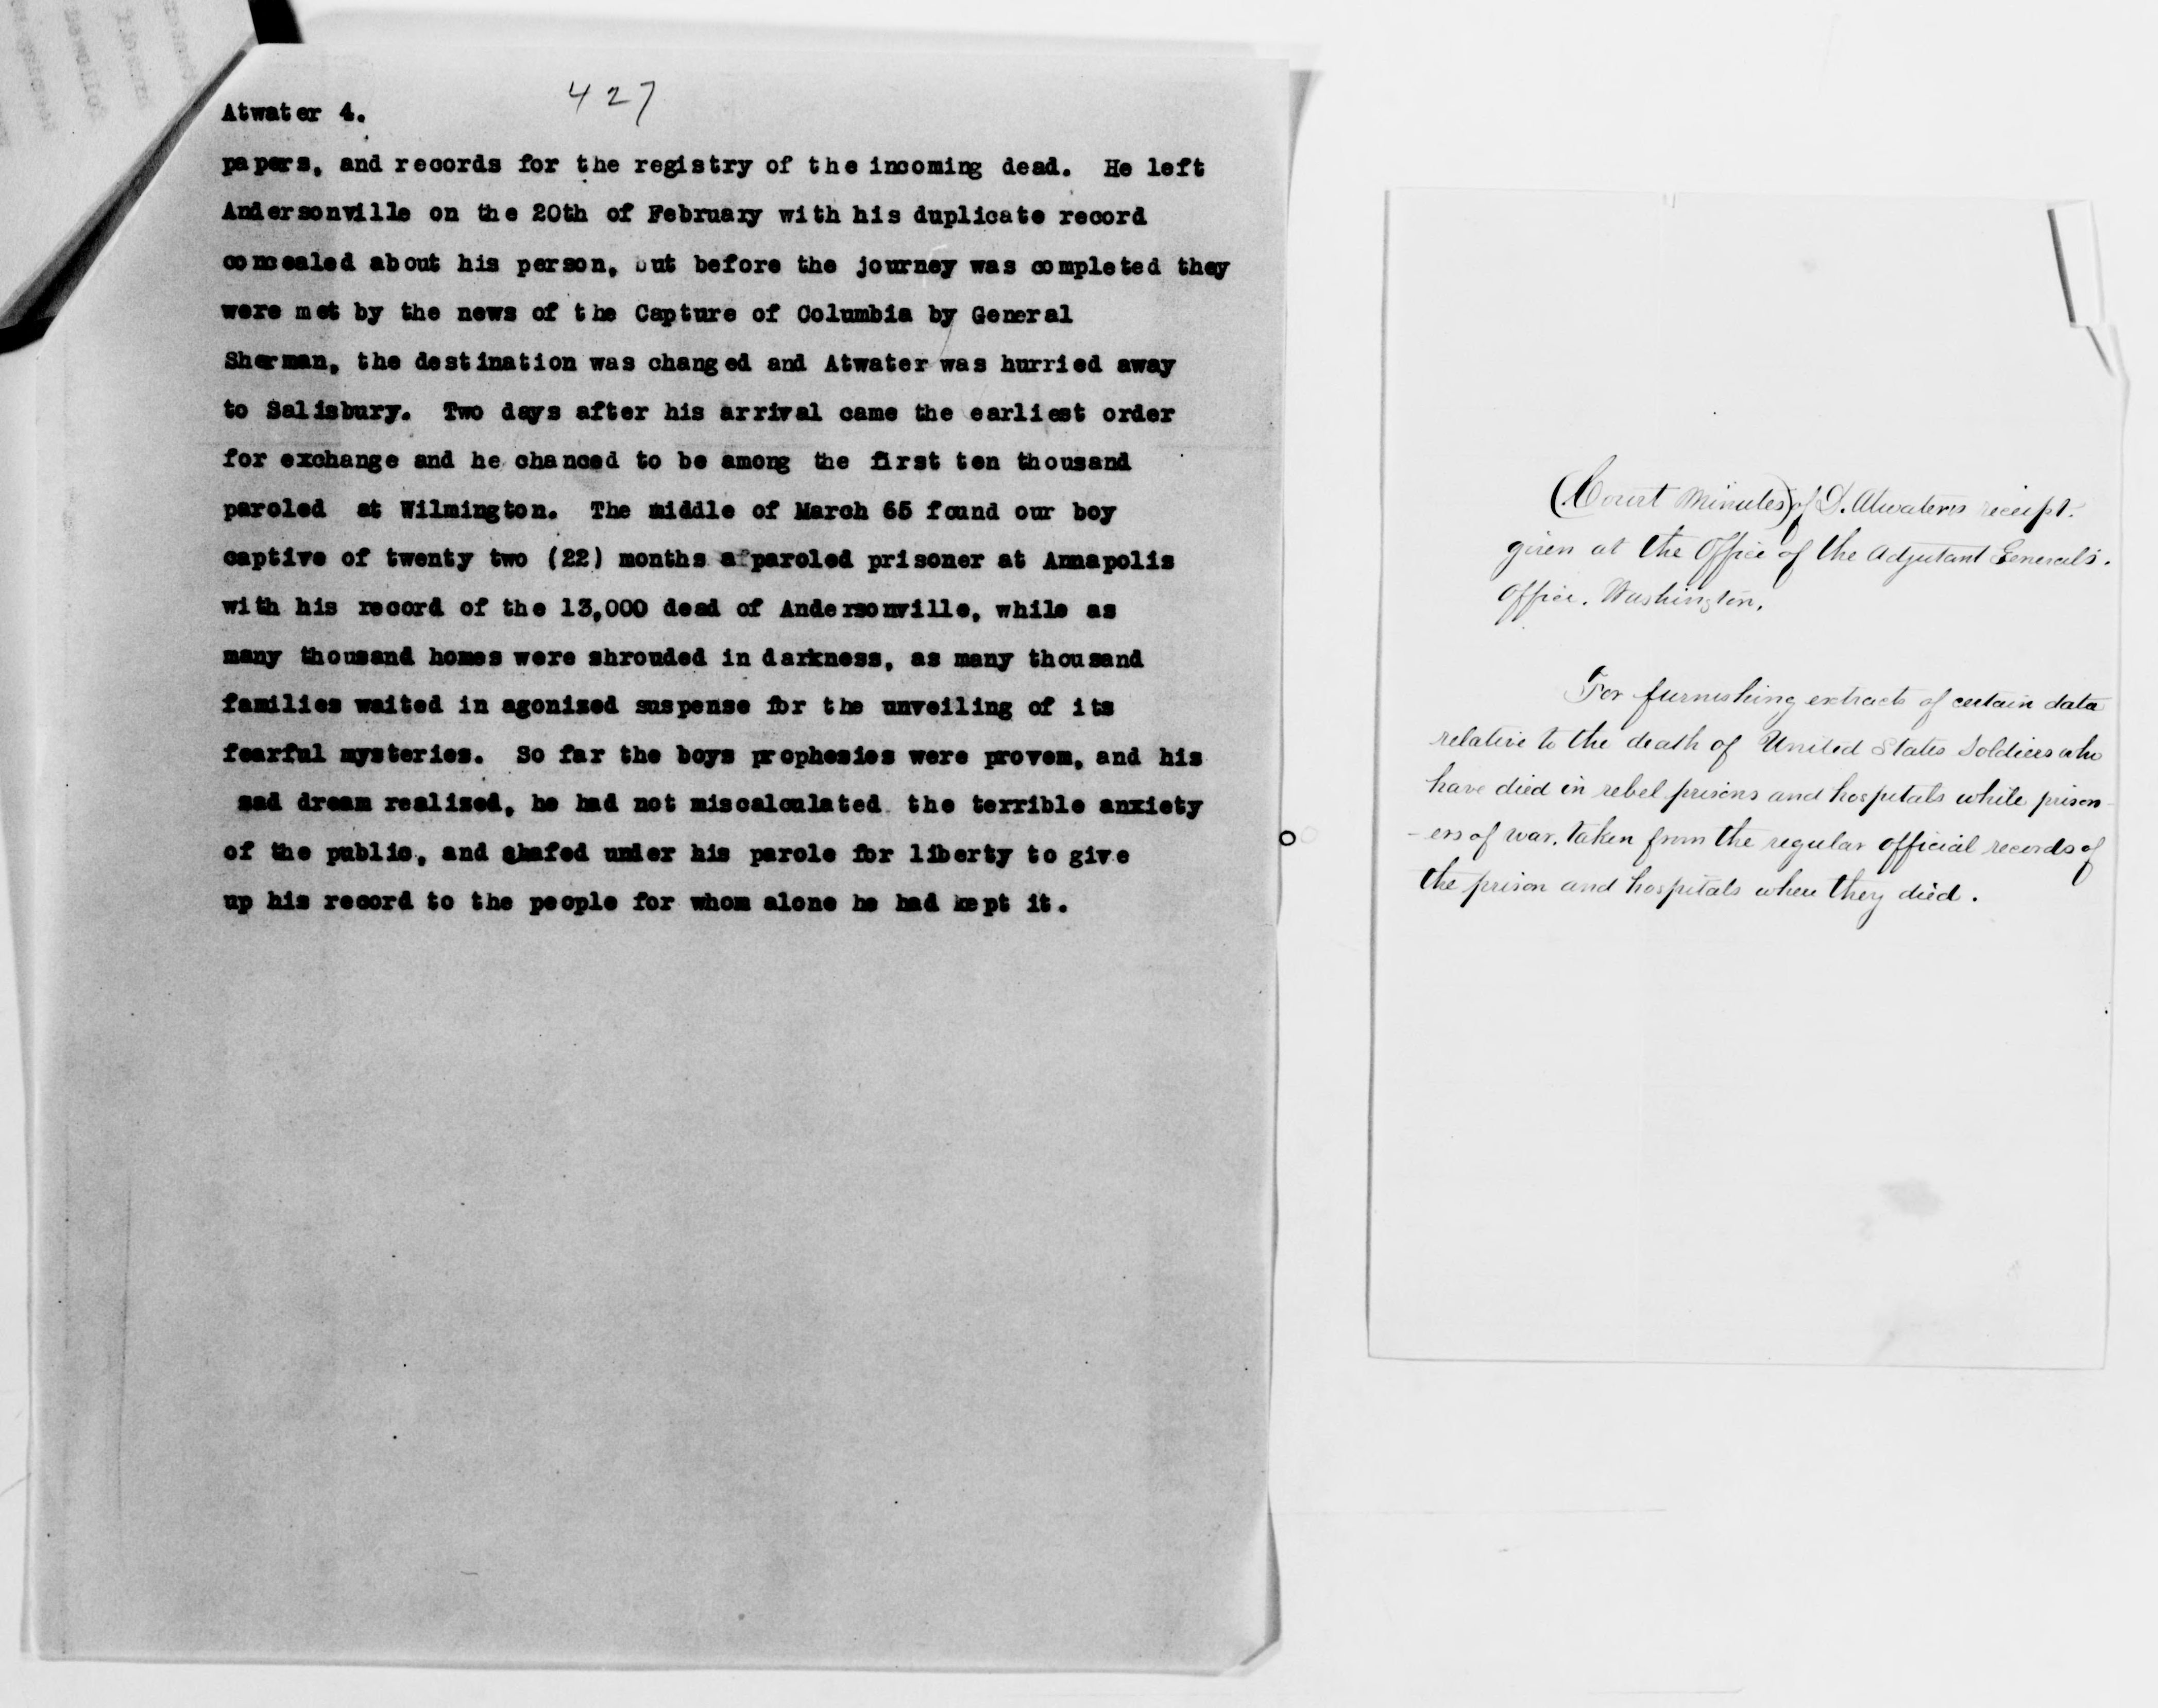 427
Atwater 4.
papers, and records for the registry of the incoming dead. He left
Andersonville on the 20th of February with his duplicate record
concealed about his person, but before the journey was completed they
were met by the news of the Capture of Columbia by General
Sherman, the destination was changed and Atwater was hurried away
to Salisbury. Two days after his arrival came the earliest order
for exchange and he chanced to be among the first ten thousand
paroled at Wilmington. The middle of March 65 found our boy
captive of twenty two (22) months a paroled prisoner at Annapolis
with his record of the 13,000 dead of Andersonville, while as
many thousand homes were shrouded in darkness, as many thousand
families waited in agonized suspense for the unveiling of its
fearful mysteries. So far the boys prophesies were proven, and his
sad dream realized, he had not miscalculated the terrible anxiety
of the public, and chafed under his parole for liberty to give
up his record to the people for whom alone he had kept it.
(Court Minutes) of D. Atwaters receipt.
given at the Office of the Adjutant Generals.
Office. Washington.
For furnishing extracts of certain data
relative to the death of United States Soldiers who
have died in rebel prisons and hospitals while prison-
-ers of war. taken from the regular official records of
the prison and hospitals where they died.